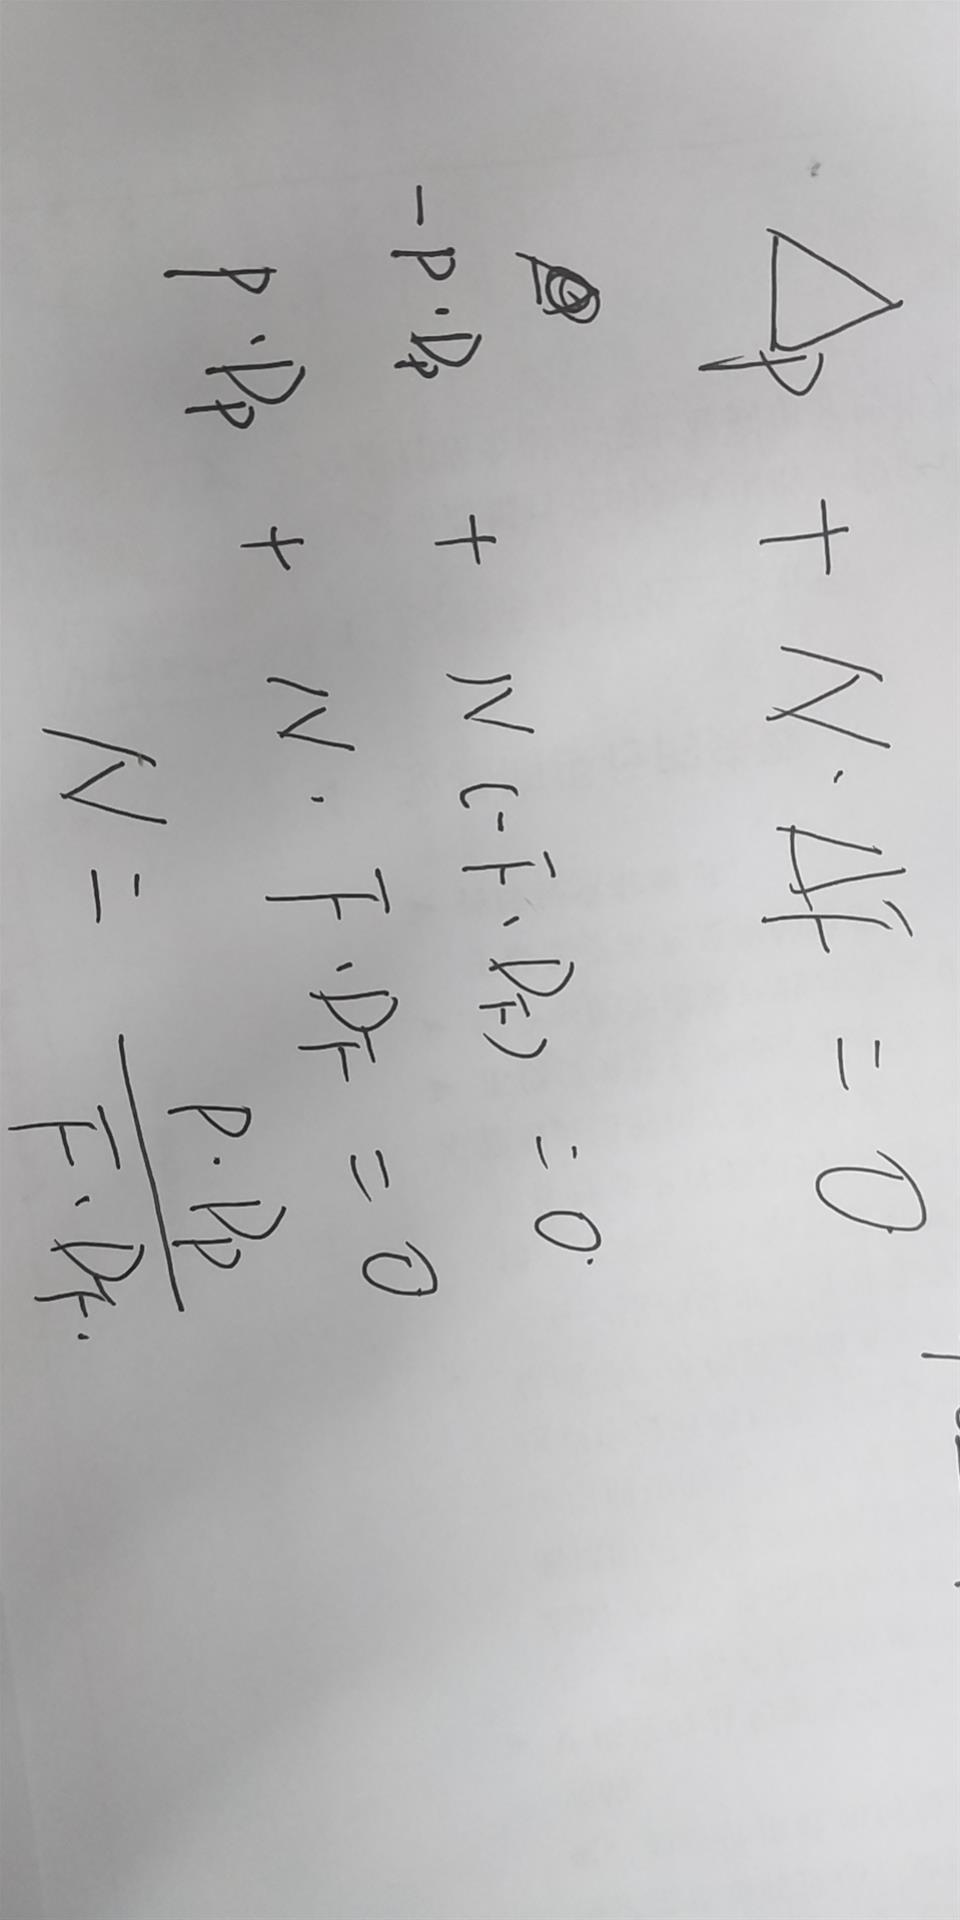 △P + N · ΔF = 0
-P · D_P + N (-F · D_F) = 0.
P · D_P + N · F · D_F = 0
N = P · D_P / F · D_F.